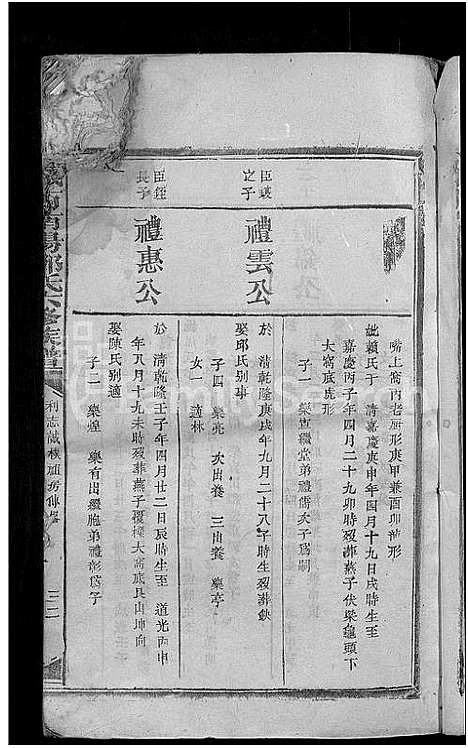 嘴上窩內老厨形庚甲兼酉卯針形
妣賴氏于 清嘉慶庚申年四月十九日戌時生至
嘉慶丙子年四月二十九卯時歿葬燕子伏梁龜頭下
大窩底虎形
子一 樂 繼堂弟禮儒次子爲嗣
臣
之子
禮雲公
於 清乾隆庚戌年九月二十八子時生歿葬缺
娶邱氏別事
子四 樂亮 次出養 三出養 樂亭
女一 適林
臣 
長子
禮惠公
於 清乾隆壬子年四月廿二日辰時生至 道光丙申
年八月十九未時歿葬燕子覆樑大窩底艮山坤向
娶陳氏別適
子二 樂煌 樂有出繼胞弟禮彰爲子
陽鄧氏六修族譜
利志
二